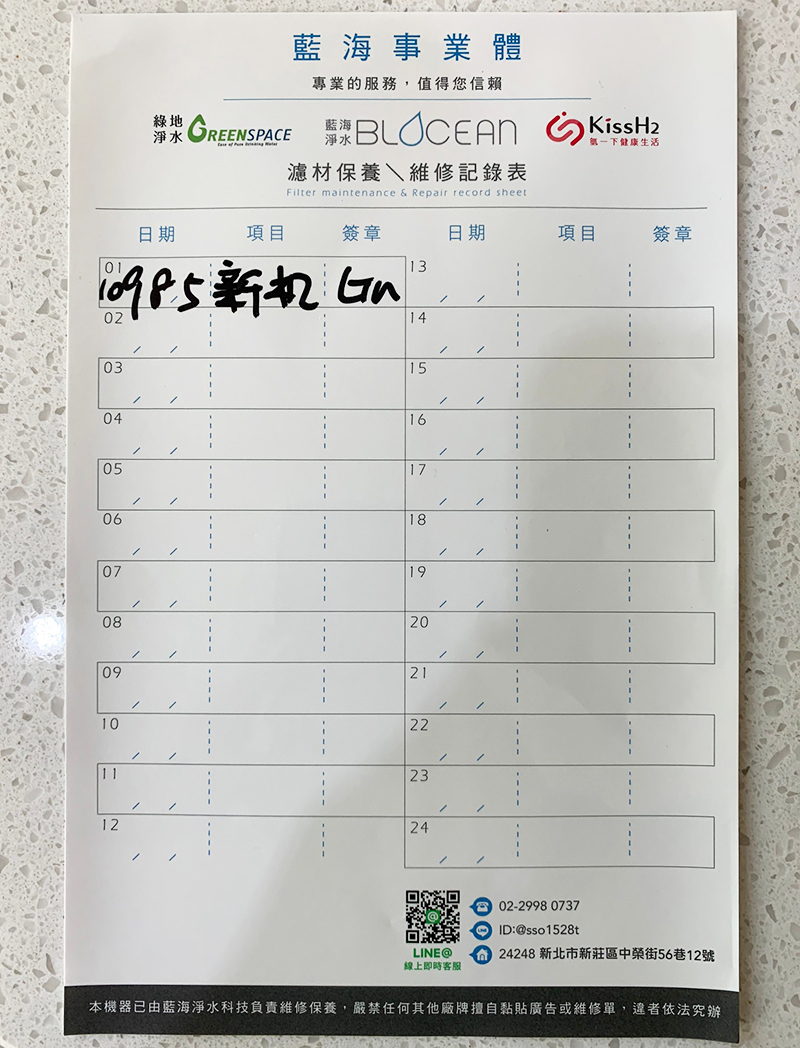 藍海事業體
專業的服務，值得您信賴
綠地淨水 GREENSPACE Ease of Pure Drinking Water
藍海淨水 BLOCEAN
KissH2 氫一下健康生活
濾材保養＼維修記錄表
Filter maintenance & Repair record sheet
日期 項目 簽章 日期 項目 簽章
01 109 8 5 新机 13
02 / / 14 / /
03 / / 15 / /
04 / / 16 / /
05 / / 17 / /
06 / / 18 / /
07 / / 19 / /
08 / / 20 / /
09 / / 21 / /
10 / / 22 / /
11 / / 23 / /
12 / / 24 / /
02-2998 0737
ID:@sso1528t
24248 新北市新莊區中榮街56巷12號
LINE@
線上即時客服
本機器已由藍海淨水科技負責維修保養，嚴禁任何其他廠牌擅自黏貼廣告或維修單，違者依法究辦